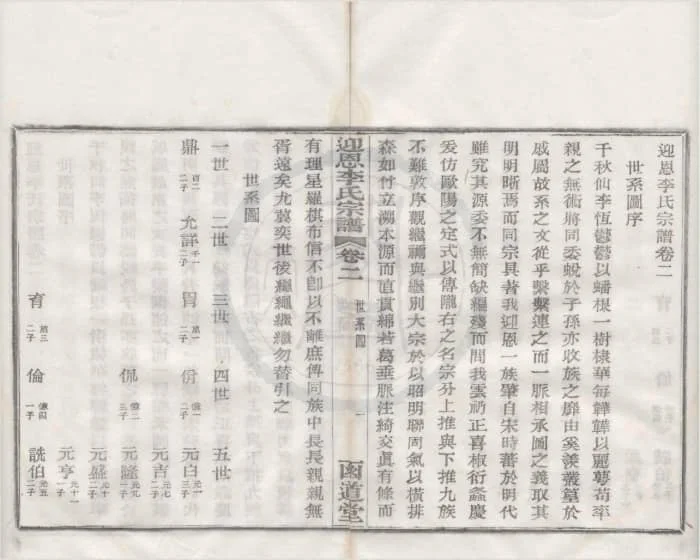 迎恩李氏宗譜卷二
世系圖序
千秋仙李恆鬱鬱以蟠根一樹棣華每韡韡以麗萼苟率
親之無術將同委蛻於子孫亦收族之靡由奚羨叢篁於
戚屬故系之文從乎繫繫連之而一脈相承圖之義取其
明明晰焉而同宗具著我迎恩一族肇自宋時蕃於明代
雖究其源委不無簡缺編殘而閱我雲礽正喜椒衍螽慶
爰仿歐陽之定式以傳隴右之名宗分上推與下推九族
不難敦序觀繼禰與繼別大宗於以昭明聯周氣以橫排
森如竹立溯本源而直貫綿若葛垂脈注綺交眞有條而
迎恩李氏宗譜 卷二 世系圖 一 函道堂
有理星羅棋布信不卽以不離庶傳同族中長長親親無
胥遠矣尤冀奕世後繩繩繼繼勿替引之
世系圖
一世 二世 三世 四世 五世
鼎 百二 二子 允詳 千一 二子 冑 萬一 二子 俏 二子 元白 元一 三子
元吉 元七 二子
侃 三子 元隆 元九 二子
元盛 元十 二子
元亨 元十一 二子
育 萬三 二子 倫 一子 詵伯 元五 二子